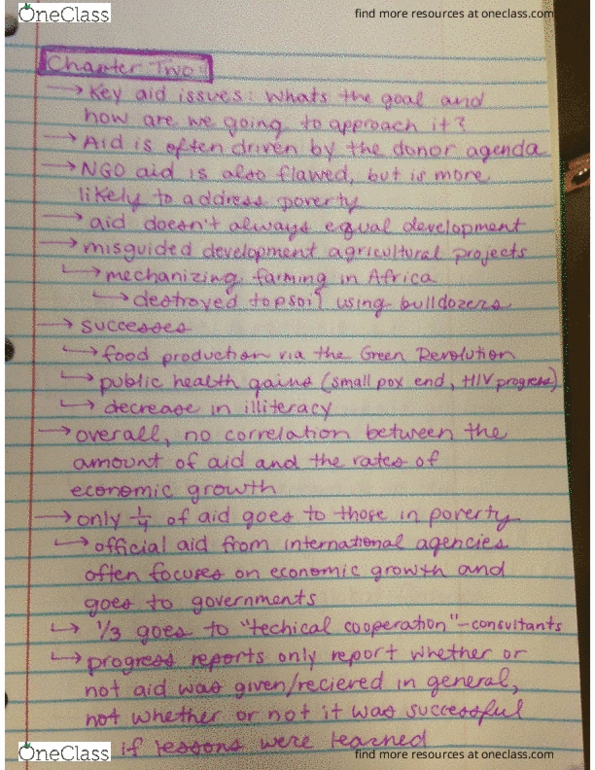 OneClass
find more resources at oneclass.com
Chapter Two
→ Key aid issues: Whats the goal and
how are we going to approach it?
→ Aid is often driven by the donor agenda
→ NGO aid is also flawed, but is more
likely to address poverty
→ aid doesn't always equal development
→ misguided development agricultural projects
↳ mechanizing farming in Africa
↳ destroyed topsoil using bulldozers
→ successes
↳ food production via the Green Revolution
↳ public health gains (small pox end, HIV progress)
↳ decrease in illiteracy
→ overall, no correlation between the
amount of aid and the rates of
economic growth
→ only 1/4 of aid goes to those in poverty
↳ official aid from international agencies
often focuses on economic growth and
goes to governments
↳ 1/3 goes to "techical cooperation" - consultants
↳ progress reports only report whether or
not aid was given/recieved in general,
not whether or not it was successful
if lessons were learned
OneClass
find more resources at oneclass.com